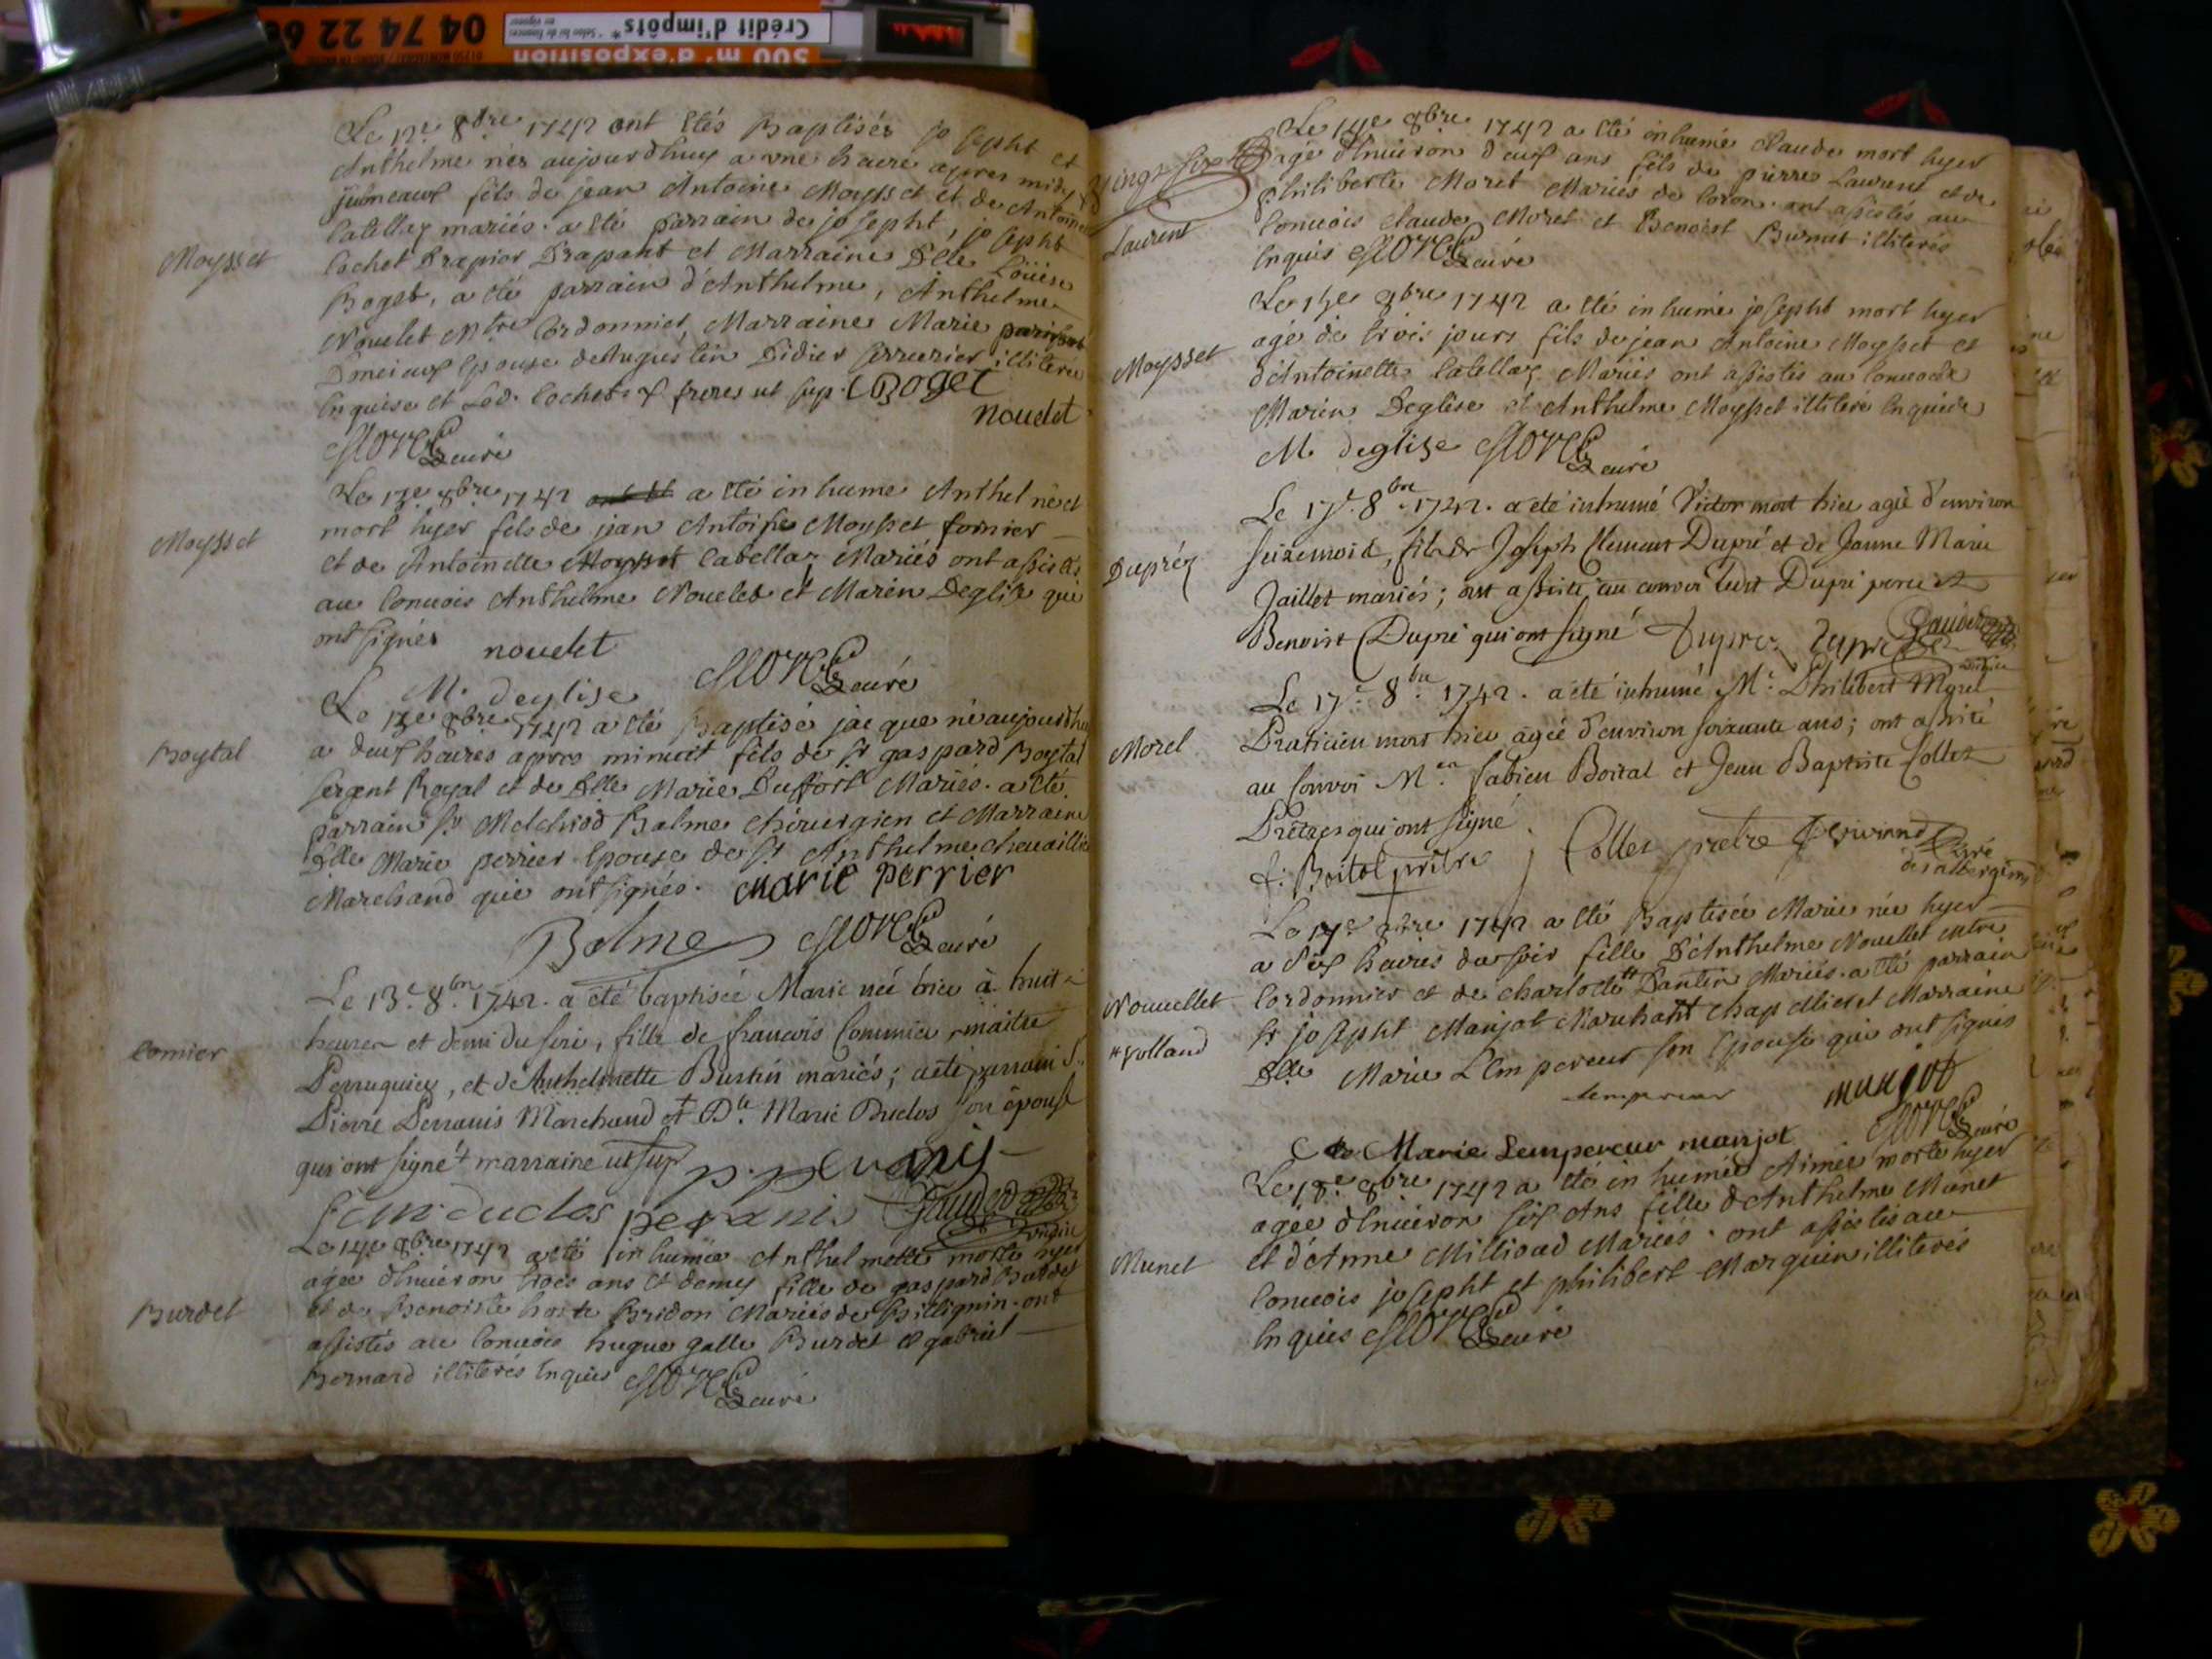 500 m² d'exposition
Crédit d'impôts*
04 74 22 6
Le 12e 8bre 1742 ont étés Baptisés josepht et
Anthelme nés aujourdhuy a une heure apres midy
jumeaux fils de jean Antoine Moysset et de Antoine
Catellaz mariés. a été parrain de josepht, josepht
Cochet Drapier Drapant et Marraine Dlle Loüise
Boget, a été parrain d'Anthelme, Anthelme
Nouelet Mtre Cordonnier, Marraine Marie
epouse de Augustin Didier serrurier illiterée
Enquise et Led. Cochet ut sup. Boget
nouelet
Morel curé
Moysset
Le 13e 8bre 1742 a été inhumé Anthelme
mort hyer fils de jean Antoine Moysset fornier
et de Antoinette Catellaz Mariés ont assistés
au Convois Anthelme Nouelet et Marin Deglise qui
ont signés nouelet
M. deglise Morel curé
Moysset
Le 13e 8bre 1742 a été Baptisé jacque né aujourdhuy
a deux heures apres minuit fils de Sr gaspard Boytal
sergent Royal et de Dlle Marie Duffort Mariés. a été
parrain Sr Melchiod Balme chirurgien et Marraine
Dlle Marie perrier Epouse de Sr Anthelme chevaillier
Marchand qui ont signés. Marie perrier
Balme Morel curé
Boytal
Le 13e 8bre 1742. a été baptisée Marie née hier à huit
heures et demi du soir, fille de francois Commier maitre
Perruquier, et d'Anthelmette Burtin mariés; a été parrain Sr
Pierre Perrauis Marchand et Dlle Marie Duclos son épouse
qui ont signé + marraine ut sup
duclos
comier
Le 14e 8bre 1742 a été inhumée Anthelmette morte hyer
agée d'Enuiron trois ans et demy fille de gaspard Burdet
et de Benoiste Bridon Mariés de Billignin. ont
assistés au Convois hugue galle Burdet et gabriel
Bernard illiterés Enquis Morel curé
Burdet
Vingt sept
Le 14e 8bre 1742 a été inhumé Claude mort hyer
agé d'Enuiron deux ans fils de pierre Laurent et de
philiberte Moret Mariés de Coron. ont assistés au
Convois Claude Moret et Benoist Burnet illiterés
Enquis Morel curé
Laurent
Le 15e 8bre 1742 a été inhumé josepht mort hyer
agé de trois jours fils de jean Antoine Moysset et
d'Antoinette Catellaz Mariés ont assistés au Convois
Marin Deglise et Anthelme Moysset illiteré Enquis
M. deglise Morel curé
Moysset
Le 17e 8bre 1742. a été inhumé Victor mort hier agé d'environ
seize mois, fils de Joseph Clement Dupré et de Jeanne Marie
Jaillet mariés; ont assisté au convoi ledit Dupré pere et
Benoist Dupré qui ont signé Dupré Dupré
Dupréz
Le 17e 8bre 1742. a été inhumé Mr. Philibert Morel
Praticien mort hier agé d'environ soixante ans; ont assisté
au Convoi Mrs Fabien Boital et Jean Baptiste Collet
Prêtres qui ont signé
f: Boital prêtre Collet pretre
Morel
Le 17e 8bre 1742 a été Baptisée Marie née hyer
a Six heures du soir fille D'Anthelme Nouellet mtre
Cordonnier et de charlotte Dantin Mariés. a été parrain
Sr josepht Manjot Marchant chapellier et Marraine
Dlle Marie L'Empereur son Epouse qui ont signés
Lempereur manjot
Marie Lempereur manjot Morel curé
Nouuellet
Volland
Le 18e 8bre 1742 a été inhumée Aimée morte hyer
agée d'Enuiron six Ans fille d'Anthelme Munet
et d'Anne Millioud Mariés. ont assistés au
Convois josepht et philibert Marquin illiterés
Enquis Morel curé
Munet